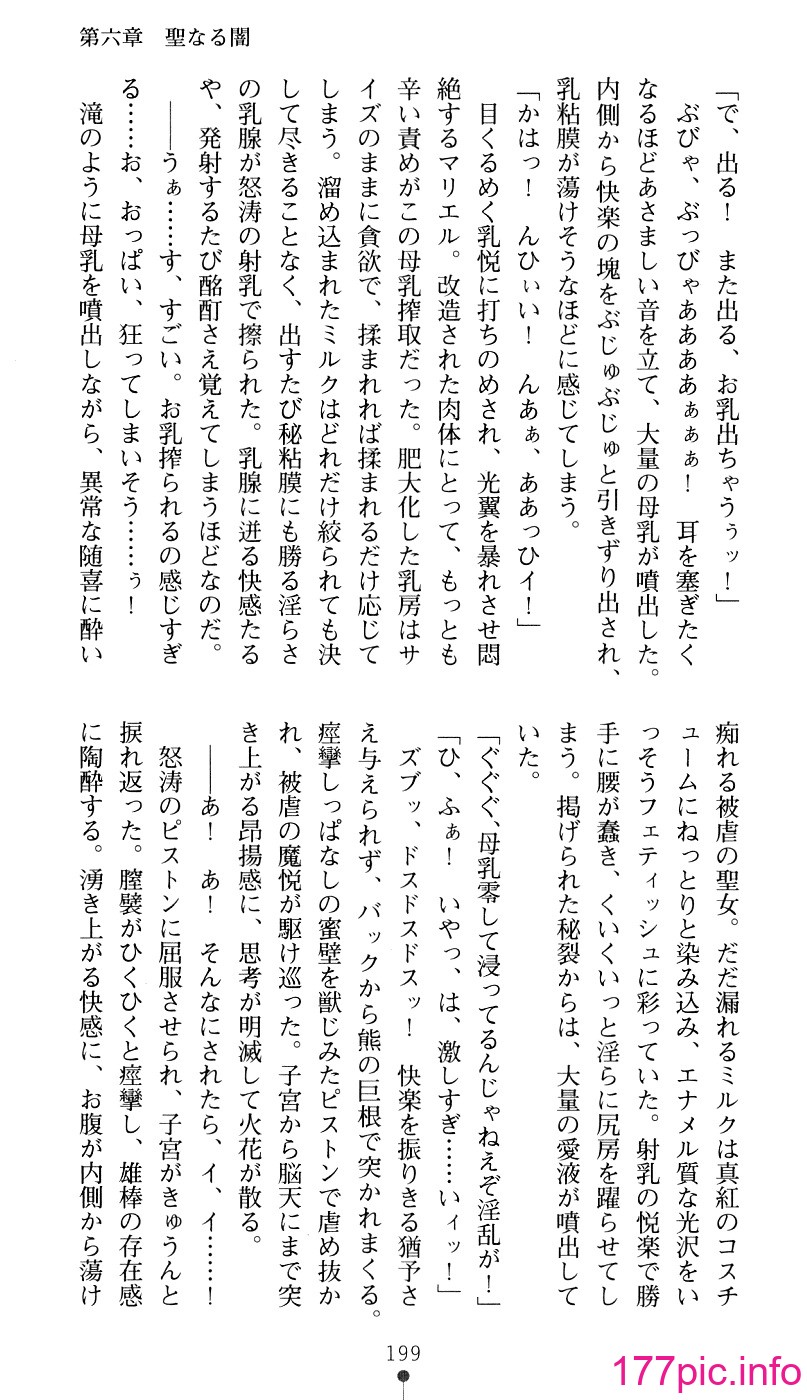 第六章　聖なる闇
「で、出る！　また出る、お乳出ちゃうぅッ！」
　ぶびゃ、ぶっびゃああああぁぁぁ！　耳を塞ぎたく
なるほどあさましい音を立て、大量の母乳が噴出した。
内側から快楽の塊をぶじゅぶじゅと引きずり出され、
乳粘膜が蕩けそうなほどに感じてしまう。
「かはっ！　んひぃい！　んあぁ、ああっひイ！」
　目くるめく乳悦に打ちのめされ、光翼を暴れさせ悶
絶するマリエル。改造された肉体にとって、もっとも
辛い責めがこの母乳搾取だった。肥大化した乳房はサ
イズのままに貪欲で、揉まれれば揉まれるだけ応じて
しまう。溜め込まれたミルクはどれだけ絞られても決
して尽きることなく、出すたび秘粘膜にも勝る淫らさ
の乳腺が怒涛の射乳で擦られた。乳腺に迸る快感たる
や、発射するたび酩酊さえ覚えてしまうほどなのだ。
　――うぁ……す、すごい。お乳搾られるの感じすぎ
る……お、おっぱい、狂ってしまいそう……ぅ！
　滝のように母乳を噴出しながら、異常な随喜に酔い
痴れる被虐の聖女。だだ漏れるミルクは真紅のコスチ
ュームにねっとりと染み込み、エナメル質な光沢をい
っそうフェティッシュに彩っていた。射乳の悦楽で勝
手に腰が蠢き、くいくいっと淫らに尻房を躍らせてし
まう。掲げられた秘裂からは、大量の愛液が噴出して
いた。
「ぐぐぐ、母乳零して浸ってるんじゃねえぞ淫乱が！」
「ひ、ふぁ！　いやっ、は、激しすぎ……いィッ！」
　ズブッ、ドスドスドスッ！　快楽を振りきる猶予さ
え与えられず、バックから熊の巨根で突かれまくる。
痙攣しっぱなしの蜜壁を獣じみたピストンで虐め抜か
れ、被虐の魔悦が駆け巡った。子宮から脳天にまで突
き上がる昂揚感に、思考が明滅して火花が散る。
　――あ！　あ！　そんなにされたら、イ、イ……！
　怒涛のピストンに屈服させられ、子宮がきゅうんと
捩れ返った。膣襞がひくひくと痙攣し、雄棒の存在感
に陶酔する。湧き上がる快感に、お腹が内側から蕩け
199
177pic.info